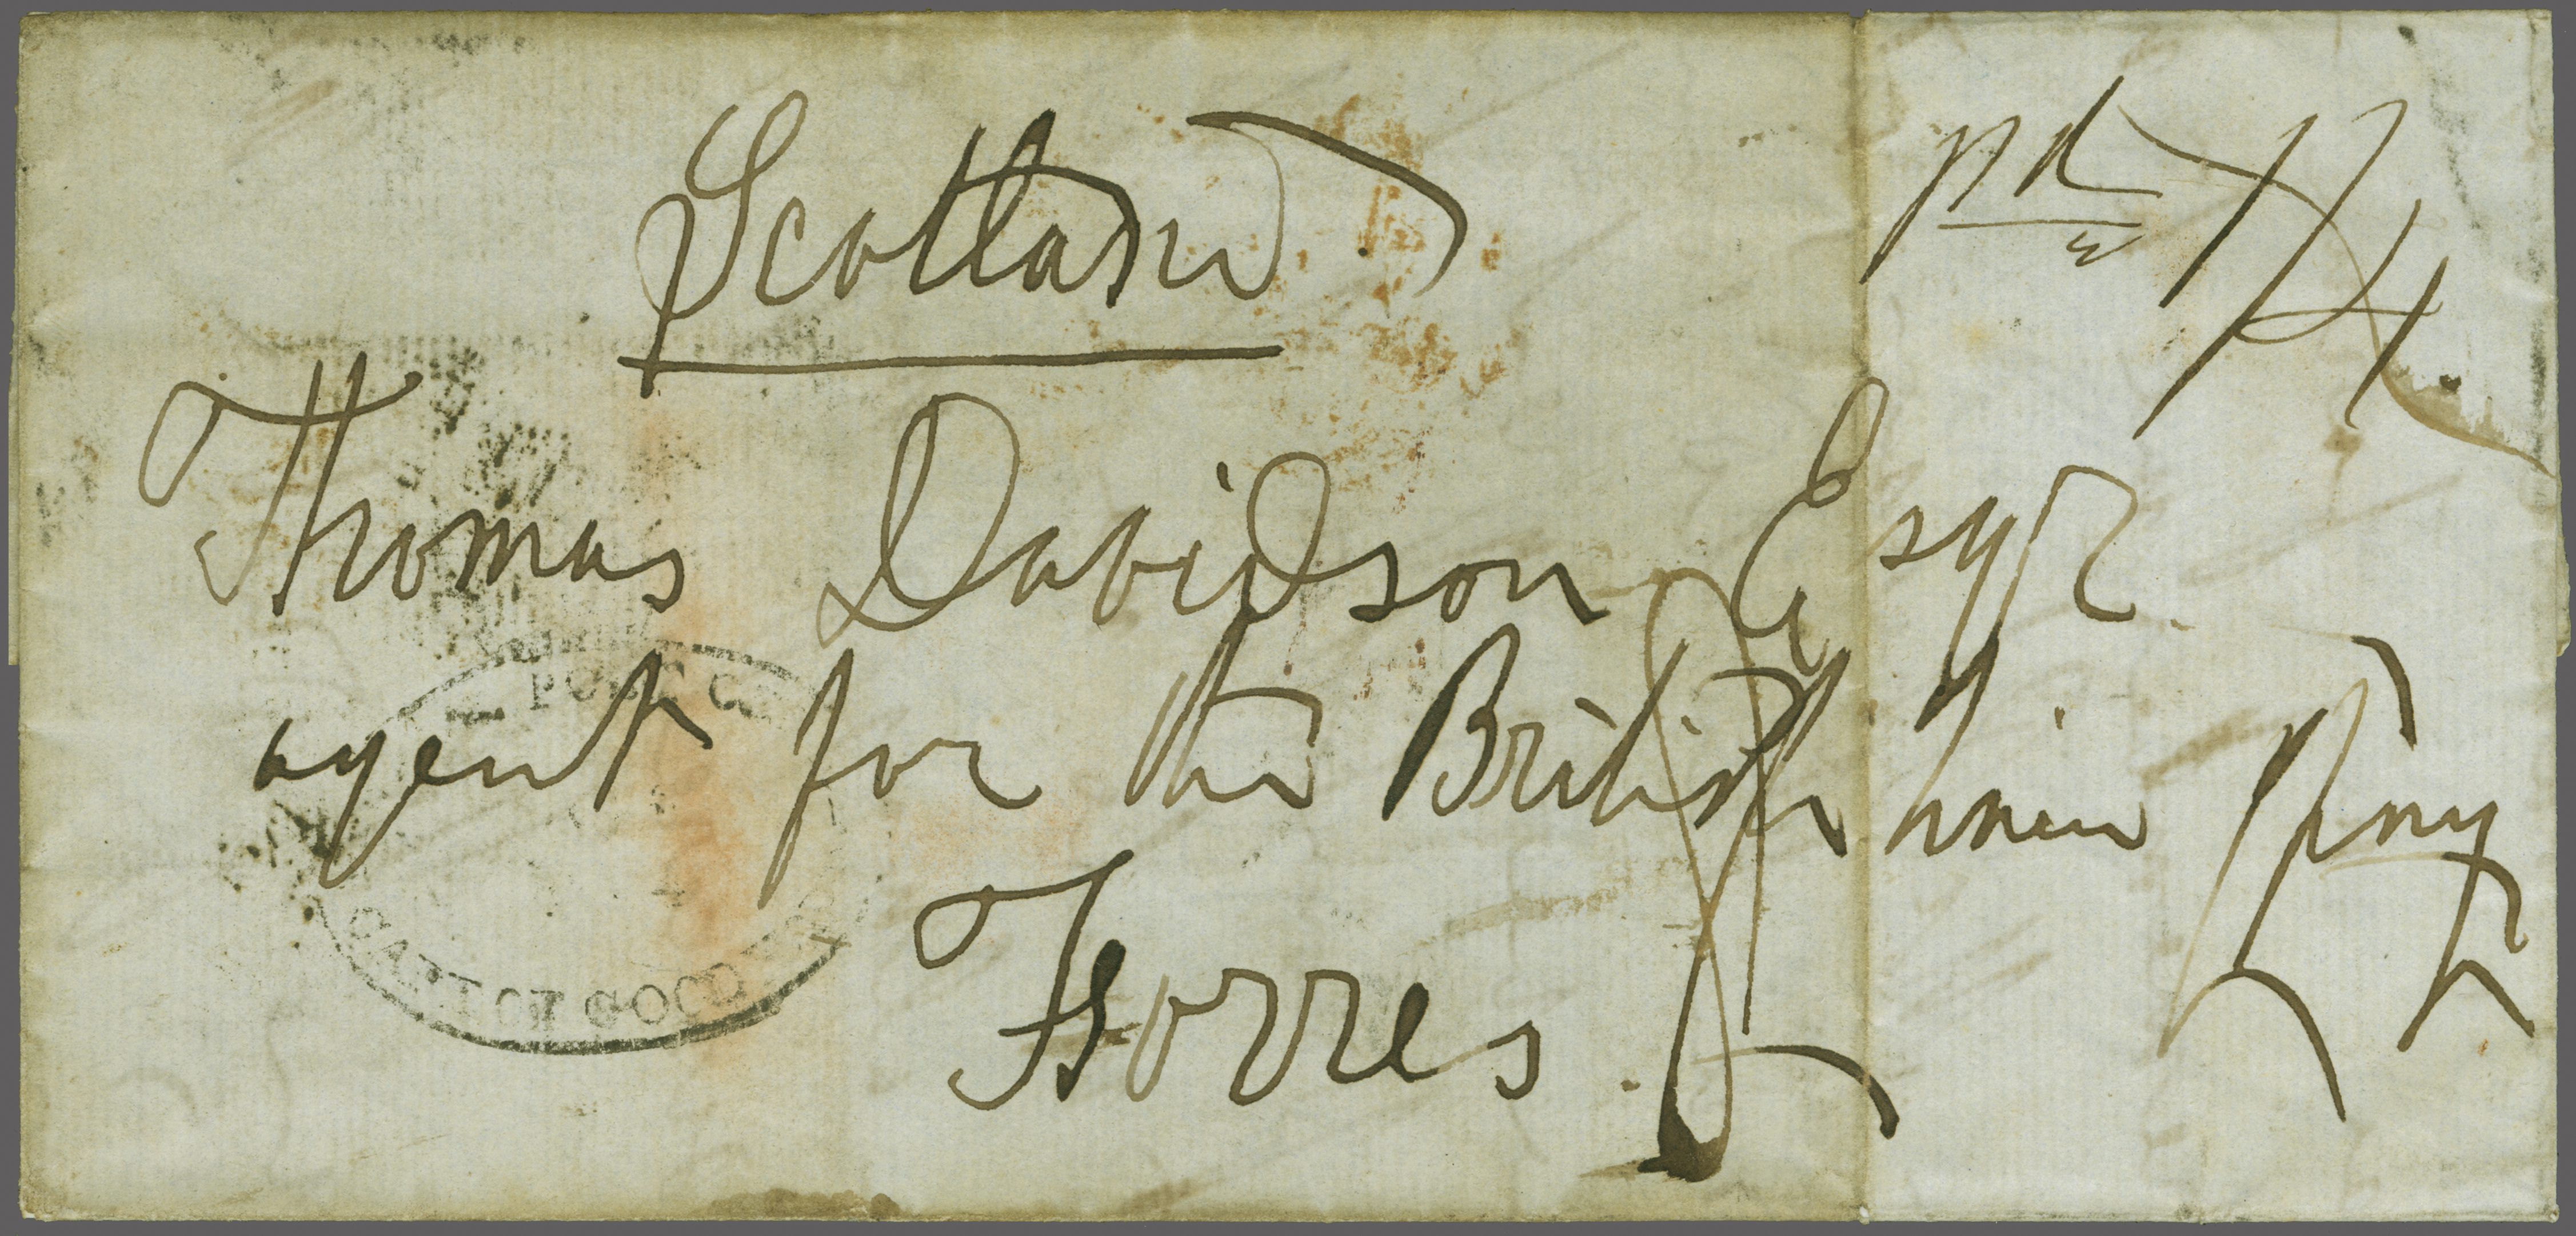 Scotland
pd 1/4
Thomas Davidson Esqr
agent for the British linin Compy
Forres
CAPE OF GOOD